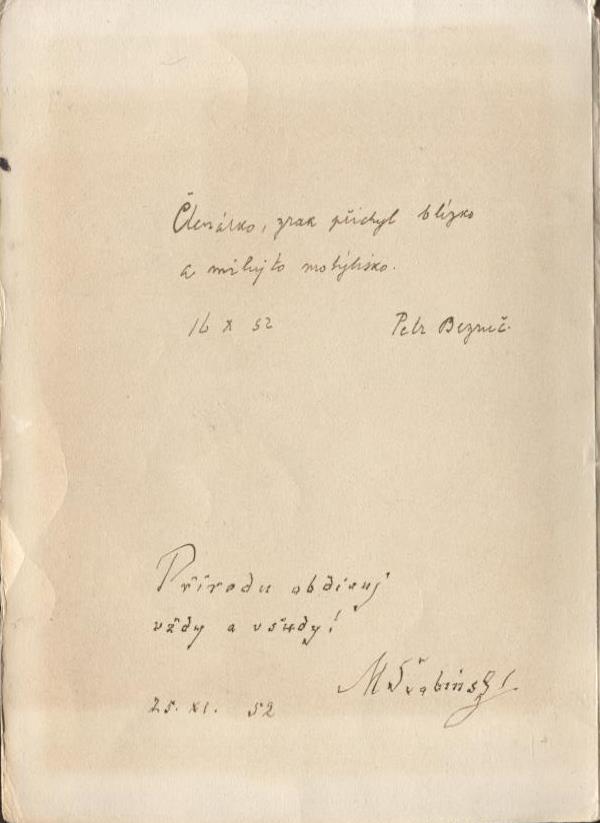 Čtenářko, zrak přichyl blízko
a miluj to motýlisko.
16 X 52 Petr Bezruč.
Přírodu obdivuj
vždy a všudy!
MŠvabinský
25. XI. 52